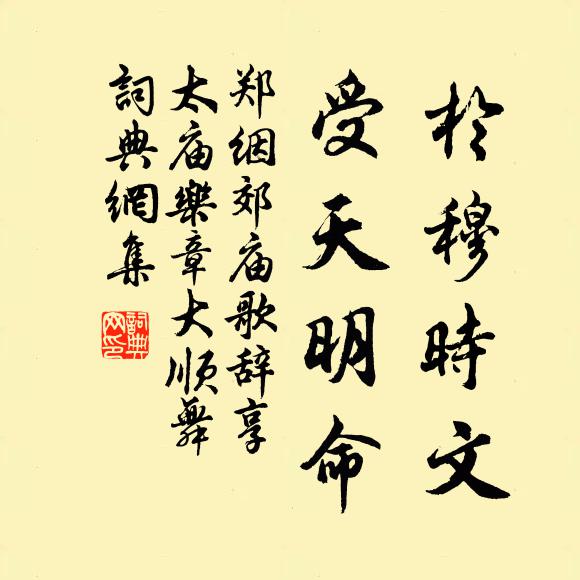 於穆時文
受天明命
郑絪郊庙歌辞享
太庙樂章大順舞
詞典網集
詞典
网印